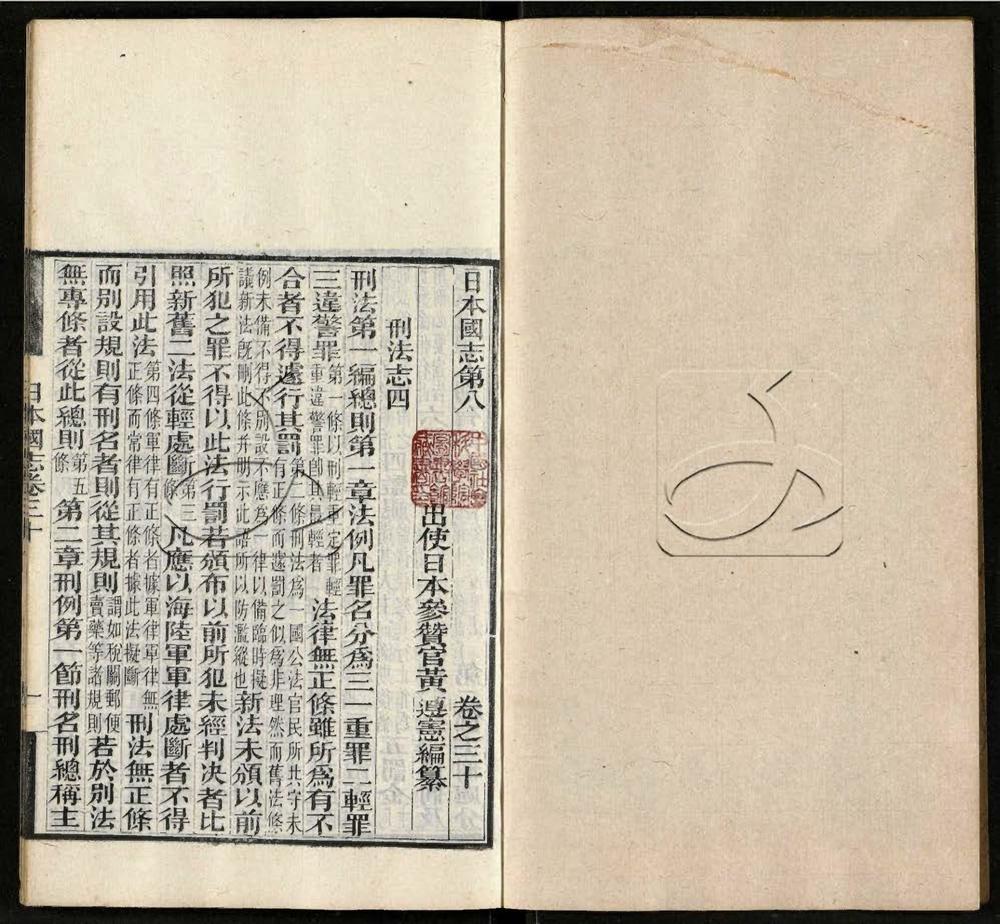 日本國志第八 卷之三十
出使日本參贊官黃遵憲編纂
刑法志四
刑法第一編總則第一章法例凡罪名分爲三一重罪二輕罪
三違警罪第一條以刑輕重定罪輕重違警罪卽其最輕者法律無正條雖所爲有不
合者不得遽行其罰第二條刑法爲一國公法官民所共守未有正條而遽罰之似爲非理然而舊法條
例未備不得不別設不應爲一律以備臨時擬議新法旣刪此條并明示此語所以防濫縱也新法未頒以前
所犯之罪不得以此法行罰若頒布以前所犯未經判决者比
照新舊二法從輕處斷第三條凡應以海陸軍軍律處斷者不得
引用此法第四條軍律有正條者據軍律軍律無正條而常律有正條者據此法擬斷刑法無正條
而別設規則有刑名者則從其規則謂如稅關郵便賣藥等諸規則若於別法
無專條者從此總則第五條第二章刑例第一節刑名刑總稱主
日本國志卷三十 一